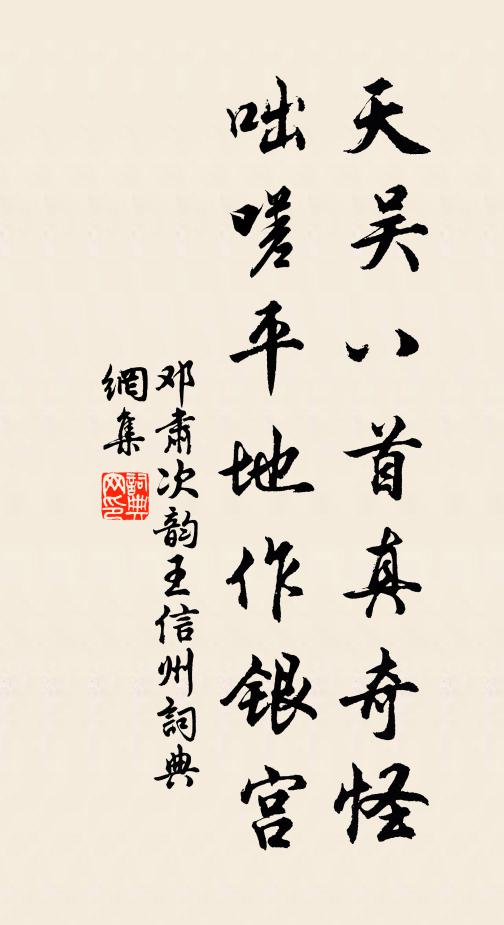 天吴八首真奇怪
咄嗟平地作银宫
邓肃次韵王信州詞典
網集
詞典网印